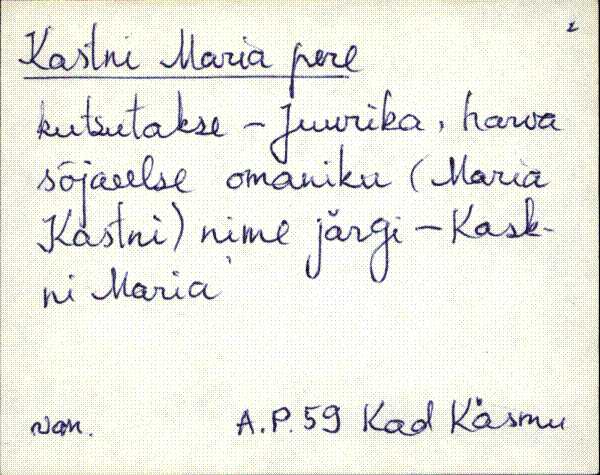 Kastni Maria pere
kutsutakse – Juurika, harva
sõjaeelse omaniku (Maria
Kastni) nime järgi – Kask-
ni Maria
A.P. 59 Kad Käsmu